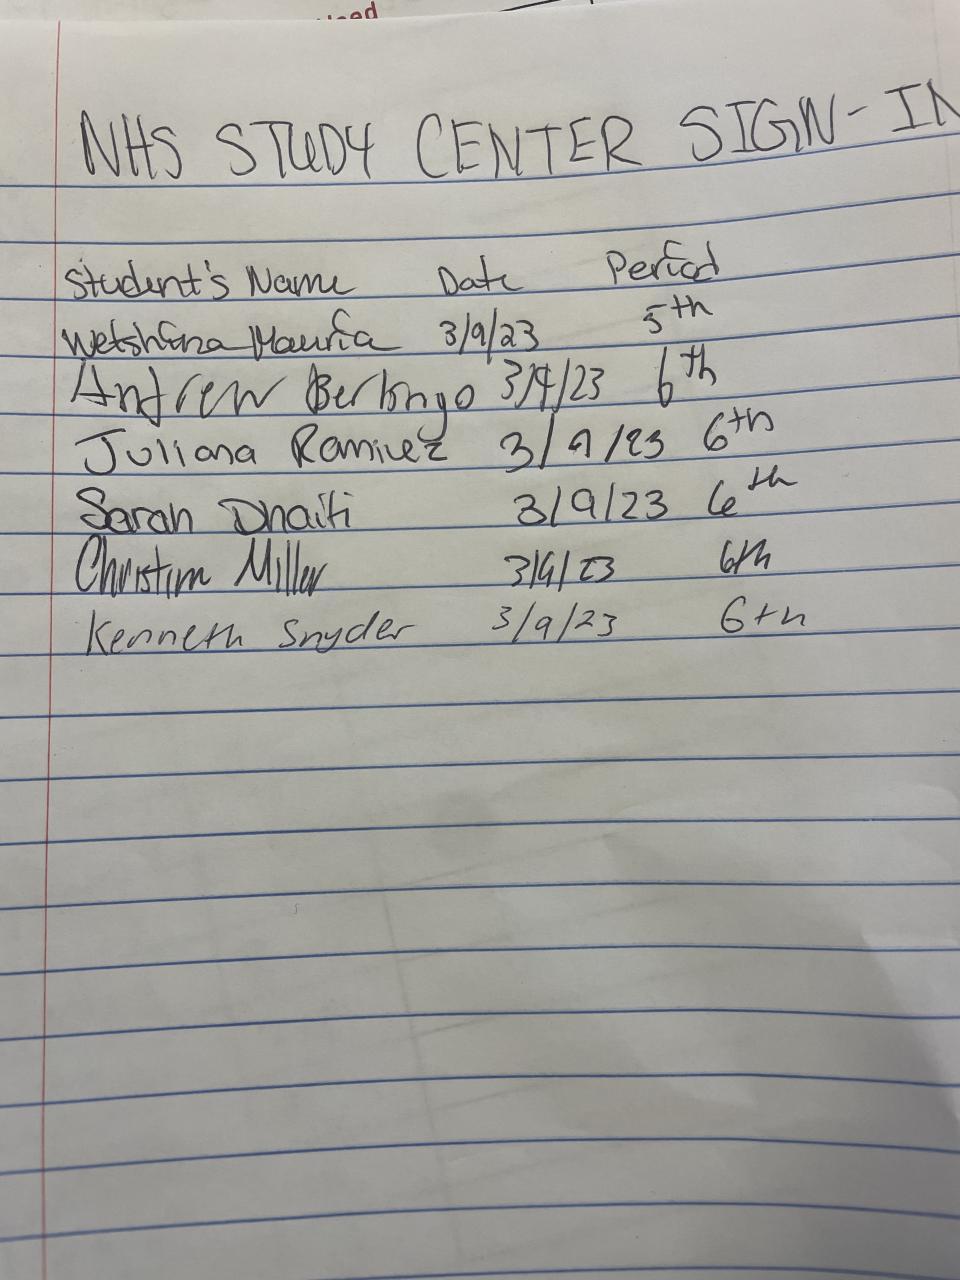 NHS STUDY CENTER SIGN-IN
Student's Name Date Period
Wetshina Mauria 3/9/23 5th
Andrew Berlongo 3/9/23 6th
Juliana Ramirez 3/9/23 6th
Sarah Dhaiti 3/9/23 6th
Christina Miller 3/9/23 6th
Kenneth Snyder 3/9/23 6th